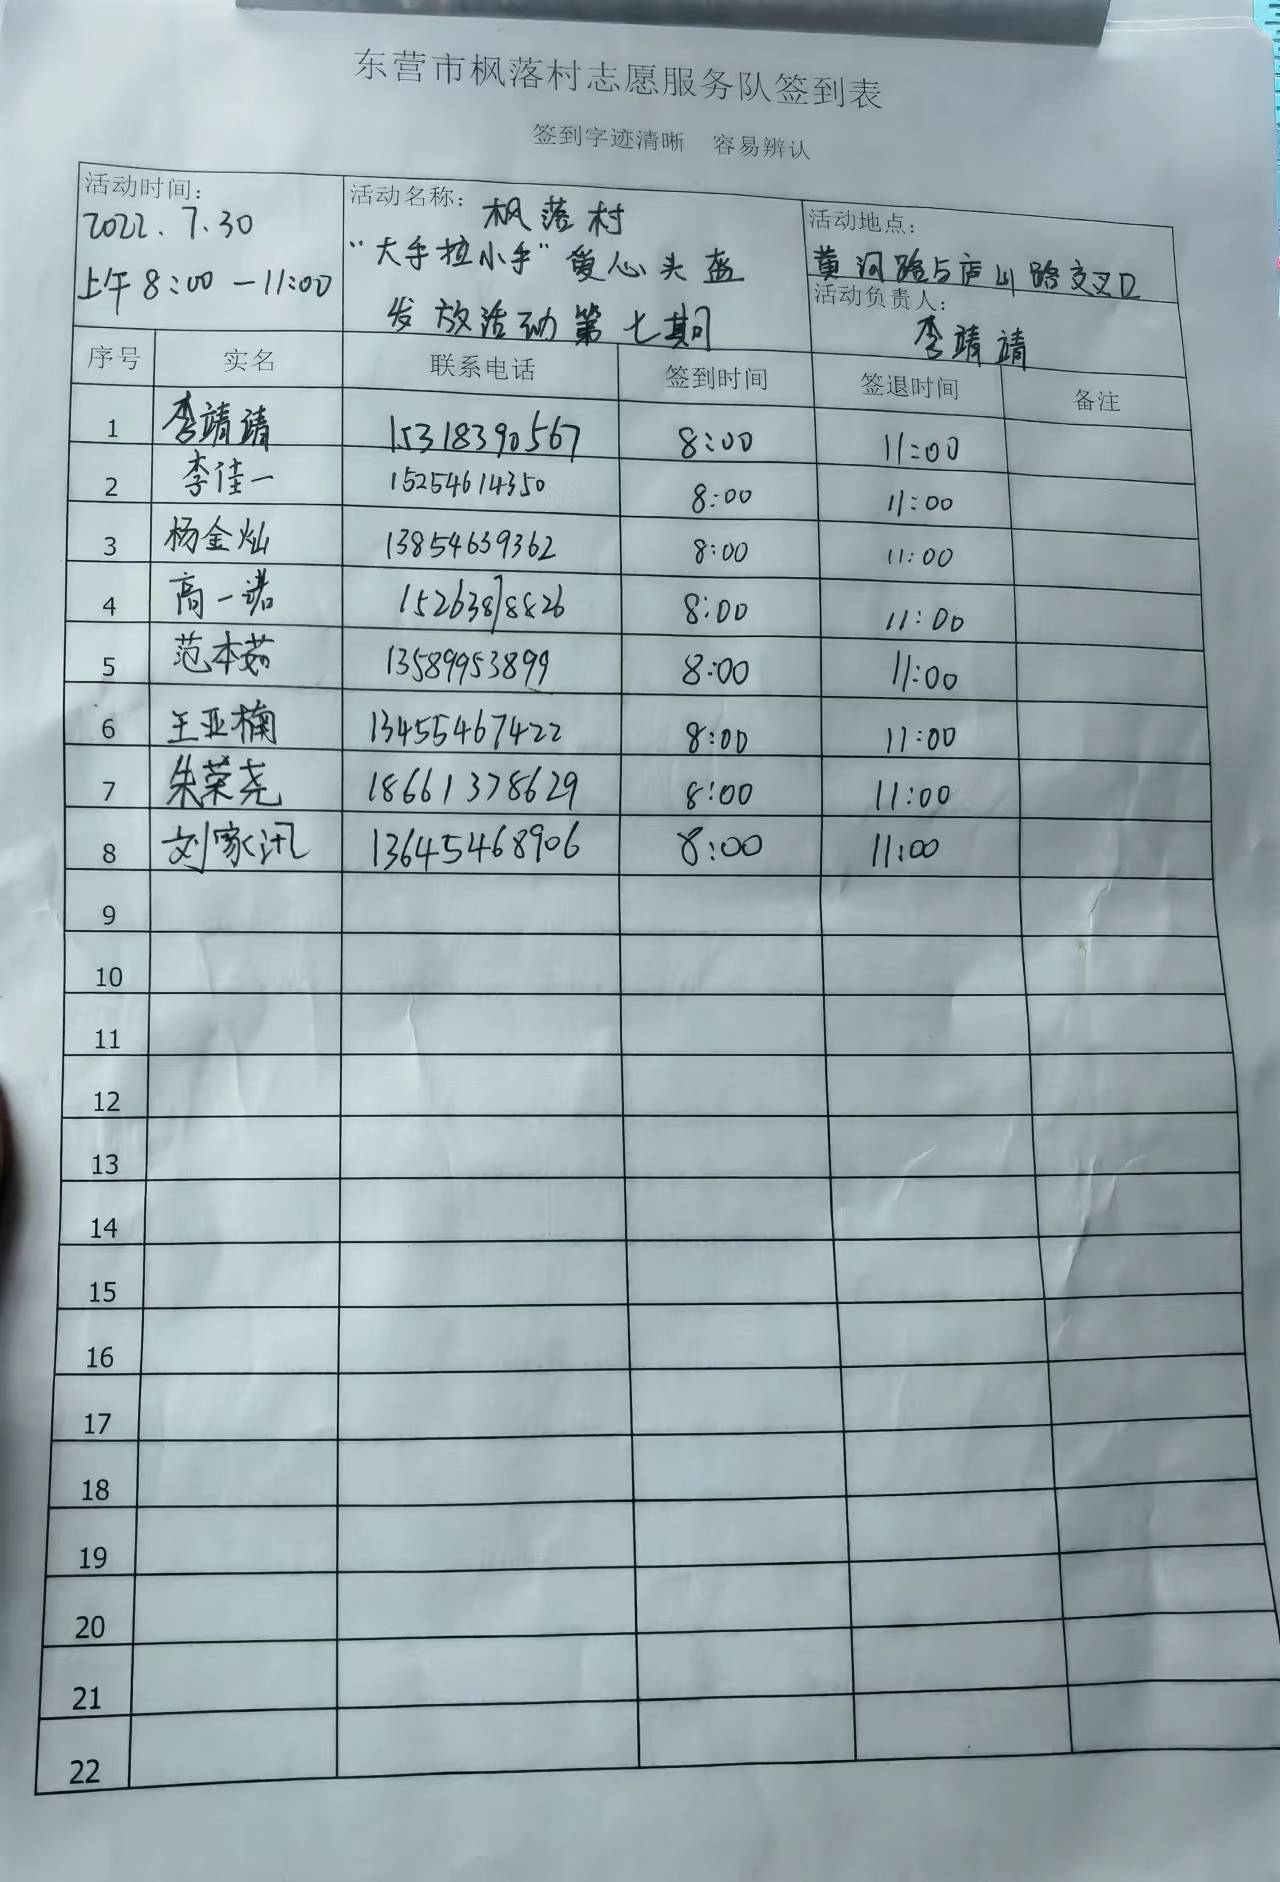 东营市枫落村志愿服务队签到表
签到字迹清晰 容易辨认
活动时间：
2022.7.30
上午8:00-11:00
活动名称：枫落村
“大手拉小手”爱心头盔
发放活动第七期
活动地点：
黄河路与庐山路交叉口
活动负责人：
李靖靖
序号 实名 联系电话 签到时间 签退时间 备注
1 李靖靖 15318390567 8:00 11:00
2 李佳一 15254614350 8:00 11:00
3 杨金灿 13854639362 8:00 11:00
4 高一诺 15263878826 8:00 11:00
5 范本茹 13589953899 8:00 11:00
6 王亚楠 13455467422 8:00 11:00
7 朱荣尧 18661378629 8:00 11:00
8 刘家汛 13645468906 8:00 11:00
9
10
11
12
13
14
15
16
17
18
19
20
21
22